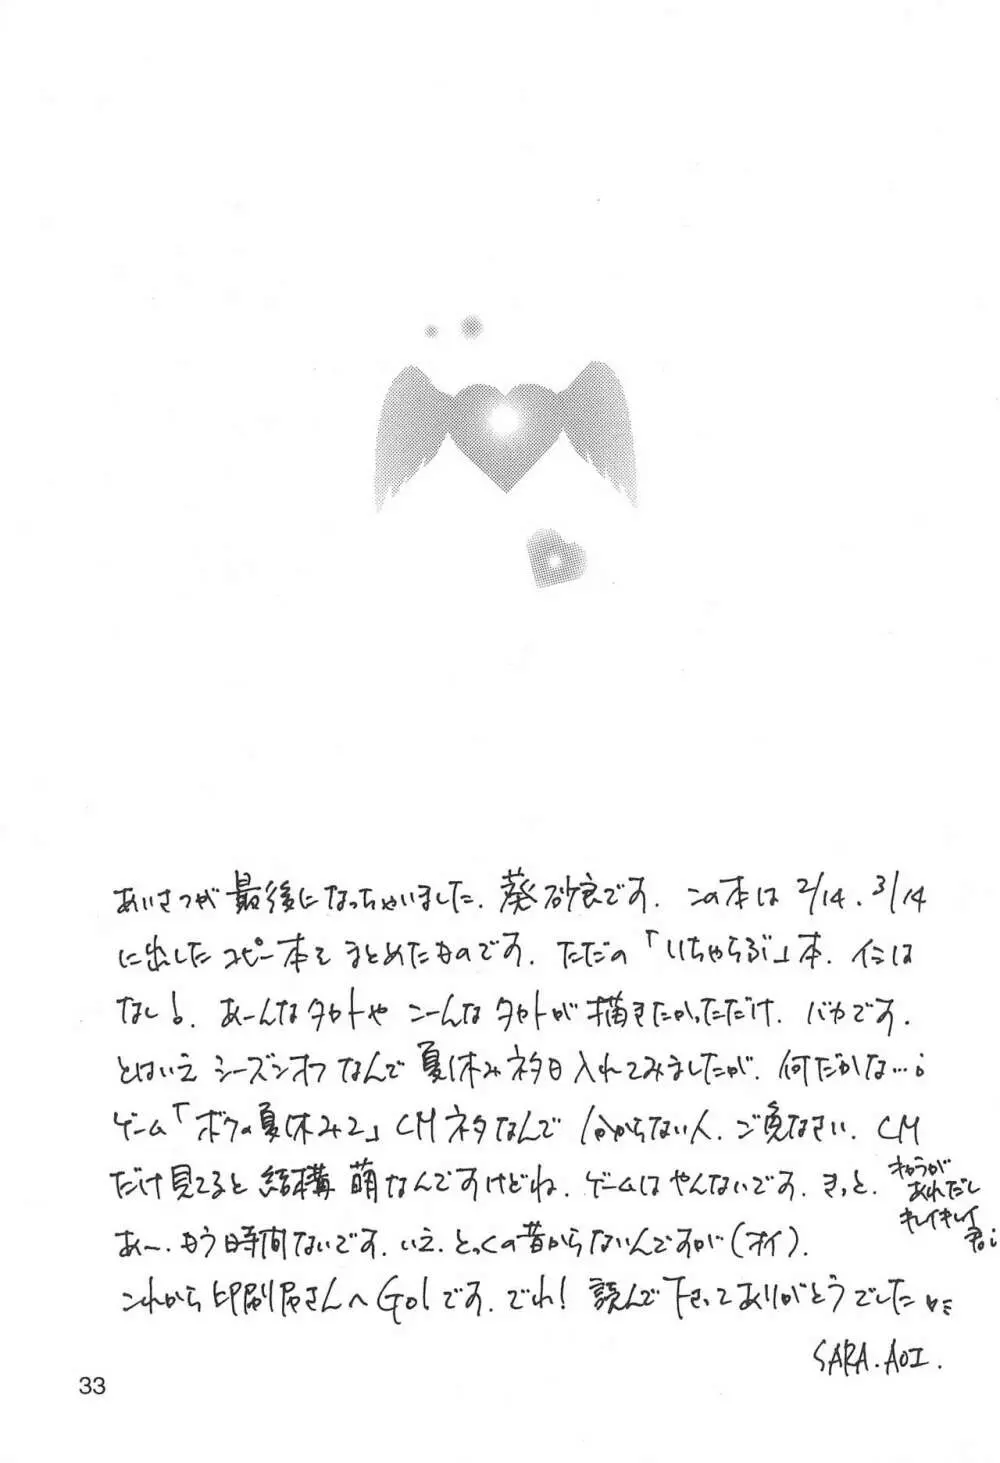 あいさつが最後になっちゃいました。葵砂良です。この本は2/14、3/14
に出したコピー本をまとめたものです。ただの「いちゃらぶ」本。イミは
なし!。あーんなタクトやこーんなタクトが描きたかっただけ。バカです。
とはいえシーズンオフなんで夏休みネタ日入れてみましたが。何だかな…。
ゲーム「ボクの夏休み2」CMネタなんで分からない人、ご免なさい。CM
だけ見てると結構萌なんですけどね。ゲームはやんないです。きっと。
あれだし
キレイキレイ
あー、もう時間ないです。いえ、とっくの昔からないんですが(オイ)。
これから印刷屋さんへGo!です。でわ!読んで下さってありがとうでした
SARA.AOI.
33